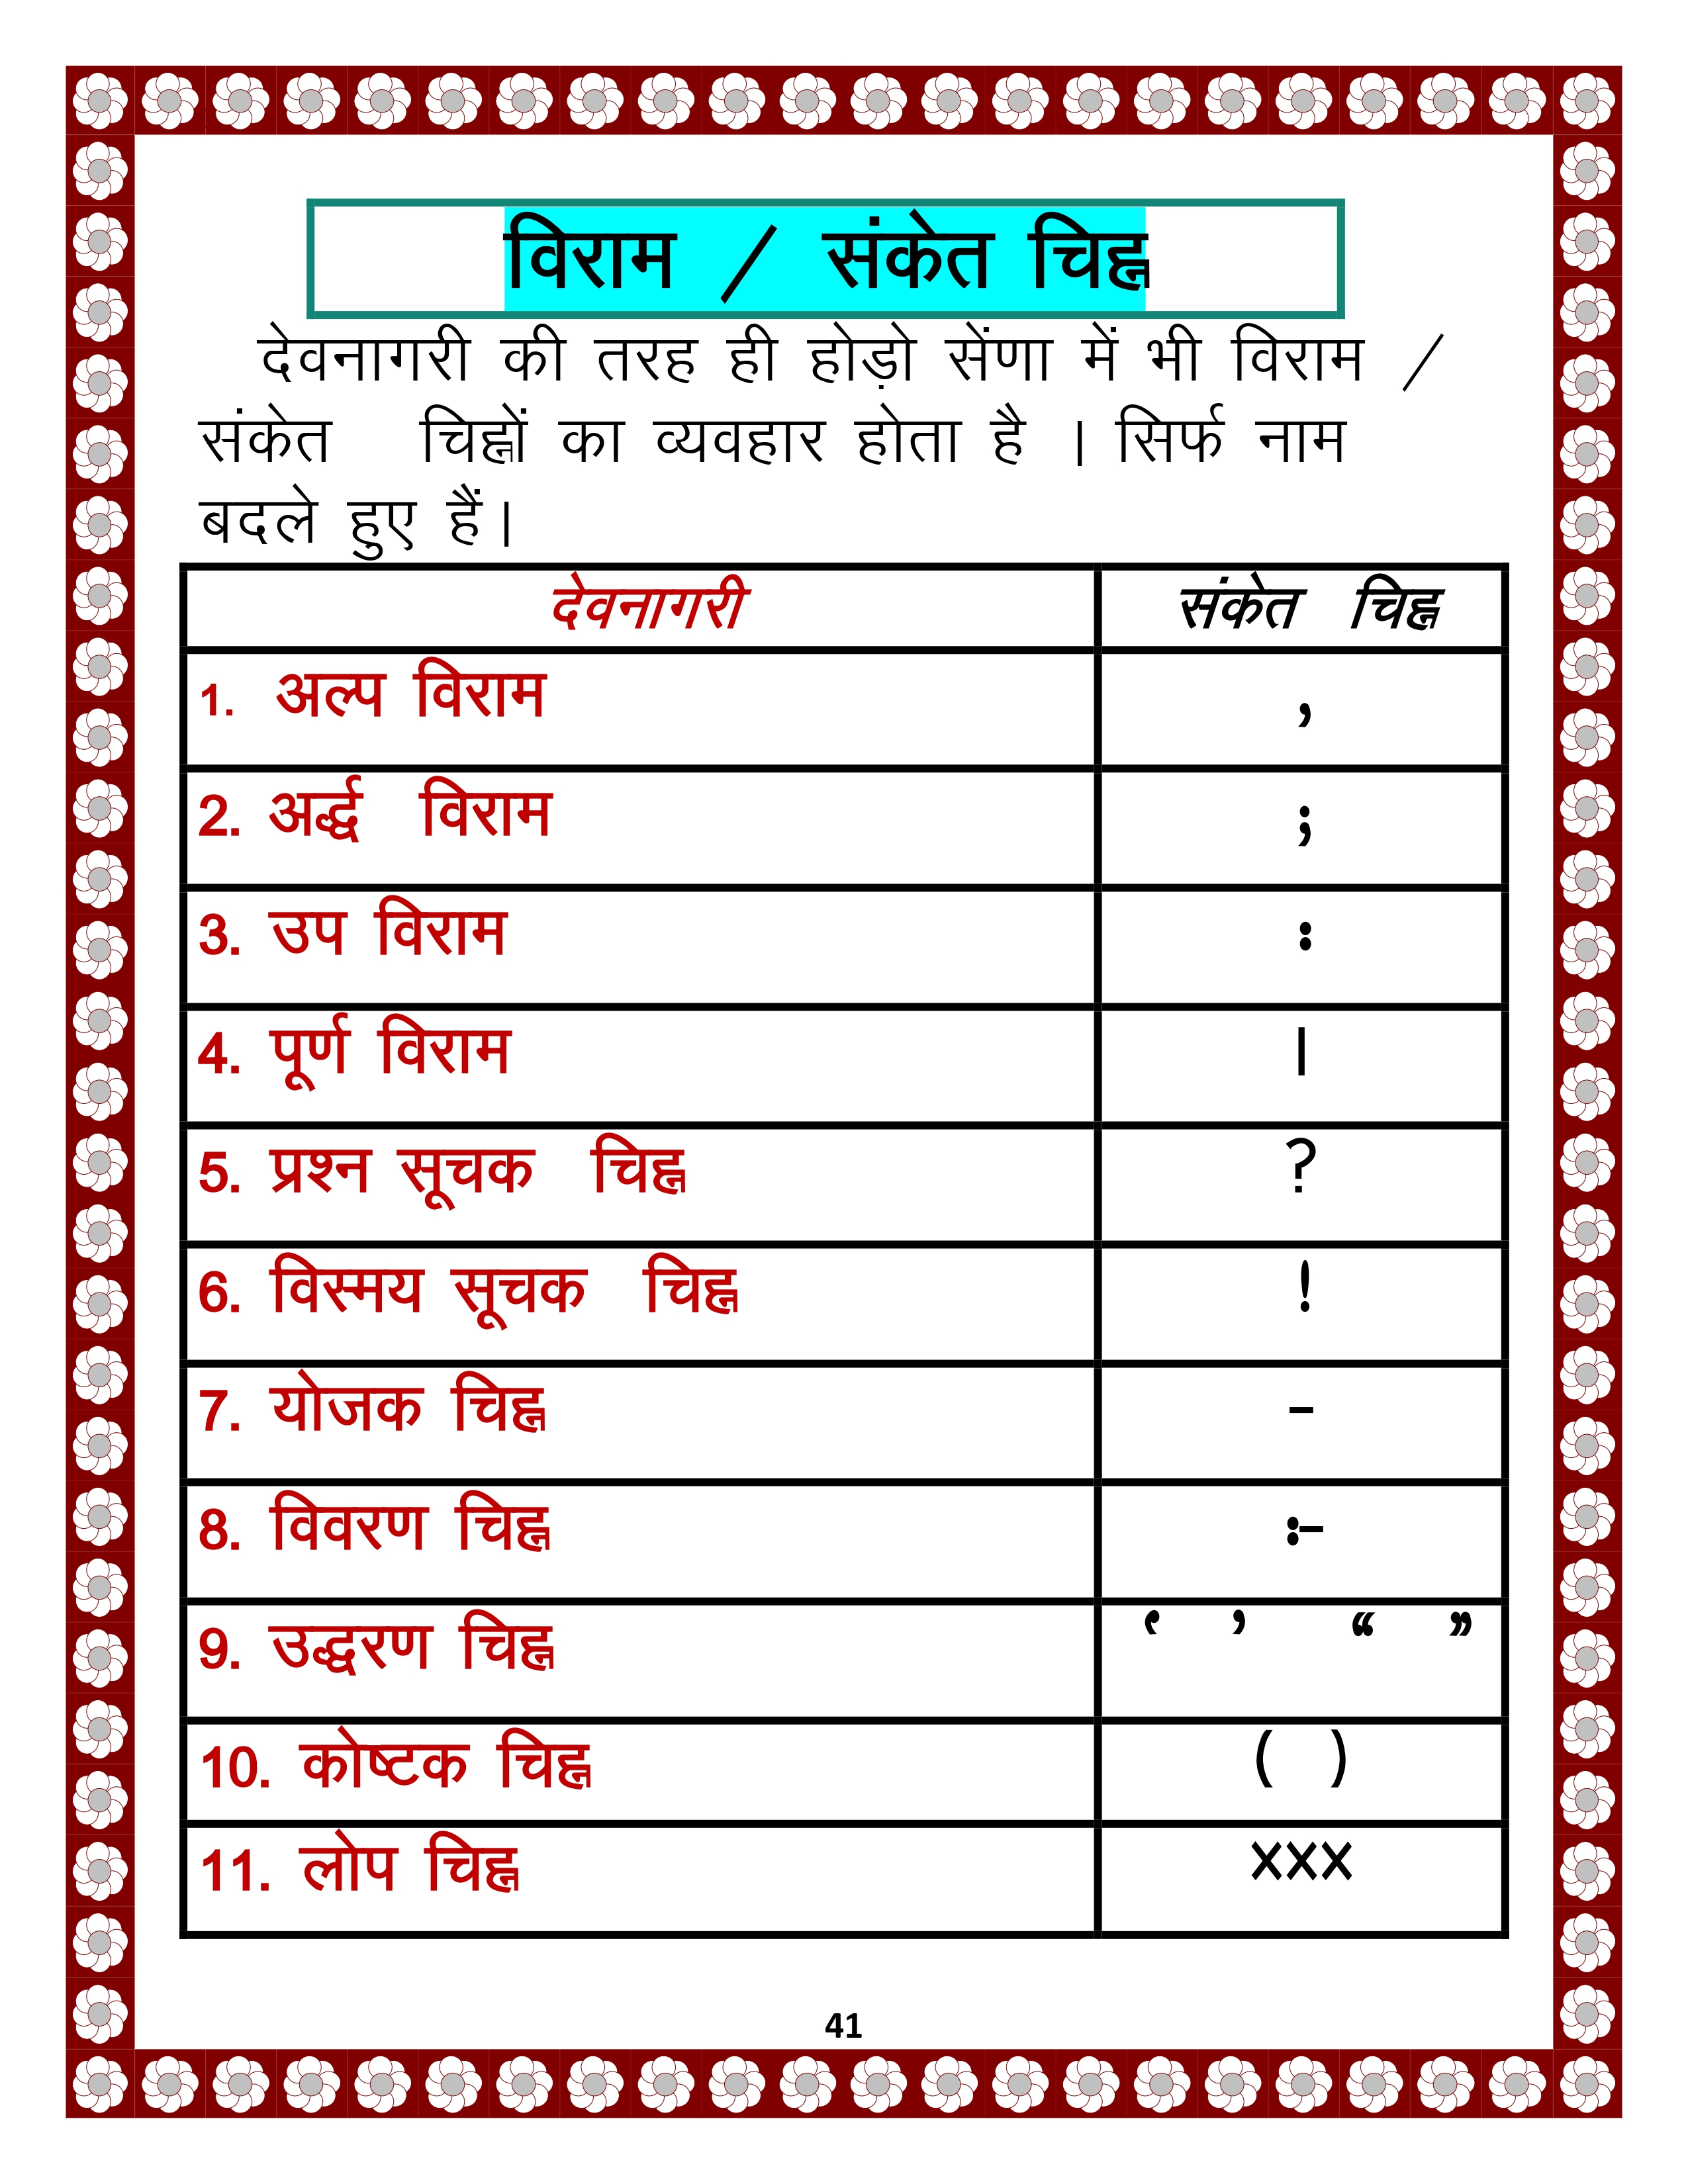 विराम / संकेत चिह्न
देवनागरी की तरह ही होड़ो सेंणा में भी विराम /
संकेत चिह्नों का व्यवहार होता है । सिर्फ नाम
बदले हुए हैं।
देवनागरी संकेत चिह्न
1. अल्प विराम ,
2. अर्द्ध विराम ;
3. उप विराम :
4. पूर्ण विराम ।
5. प्रश्न सूचक चिह्न ?
6. विस्मय सूचक चिह्न !
7. योजक चिह्न -
8. विवरण चिह्न :-
9. उद्धरण चिह्न ‘ ’ “ ”
10. कोष्टक चिह्न ( )
11. लोप चिह्न ×××
41